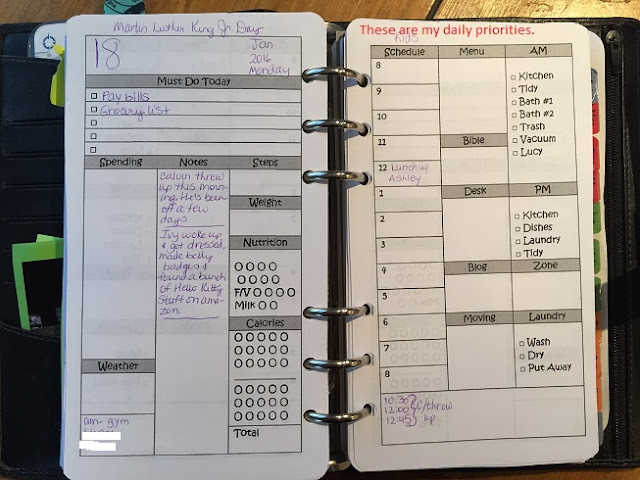 Martin Luther King Jr. Day
18
Jan
2016
Monday
Must Do Today
Pay bills
Grocery list
Spending
Notes
Steps
Calvin threw
up this mor-
ning. He's been
off a few
days
Ivy woke up
& got dressed,
made belly
badges &
found a bunch
of Hello Kitty
Stuff on ama-
zon.
Weight
Nutrition
F/V
Milk
Calories
Total
Weather
am- gym
These are my daily priorities.
Kids
Schedule
Menu
AM
8
9
10
11
12 Lunch w/
Ashley
1
2
3
4
5
6
7
8
Kitchen
Tidy
Bath #1
Bath #2
Trash
Vacuum
Lucy
Bible
Desk
PM
Kitchen
Dishes
Laundry
Tidy
Blog
Zone
Moving
Laundry
Wash
Dry
Put Away
10:30
12:00 C/throw
12:45 up